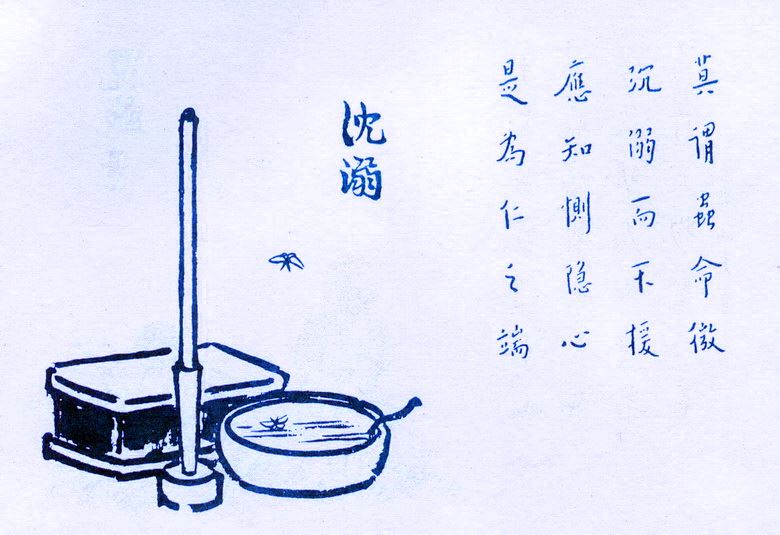 沈溺
莫謂蟲命微
沉溺而不援
應知惻隱心
是為仁之端